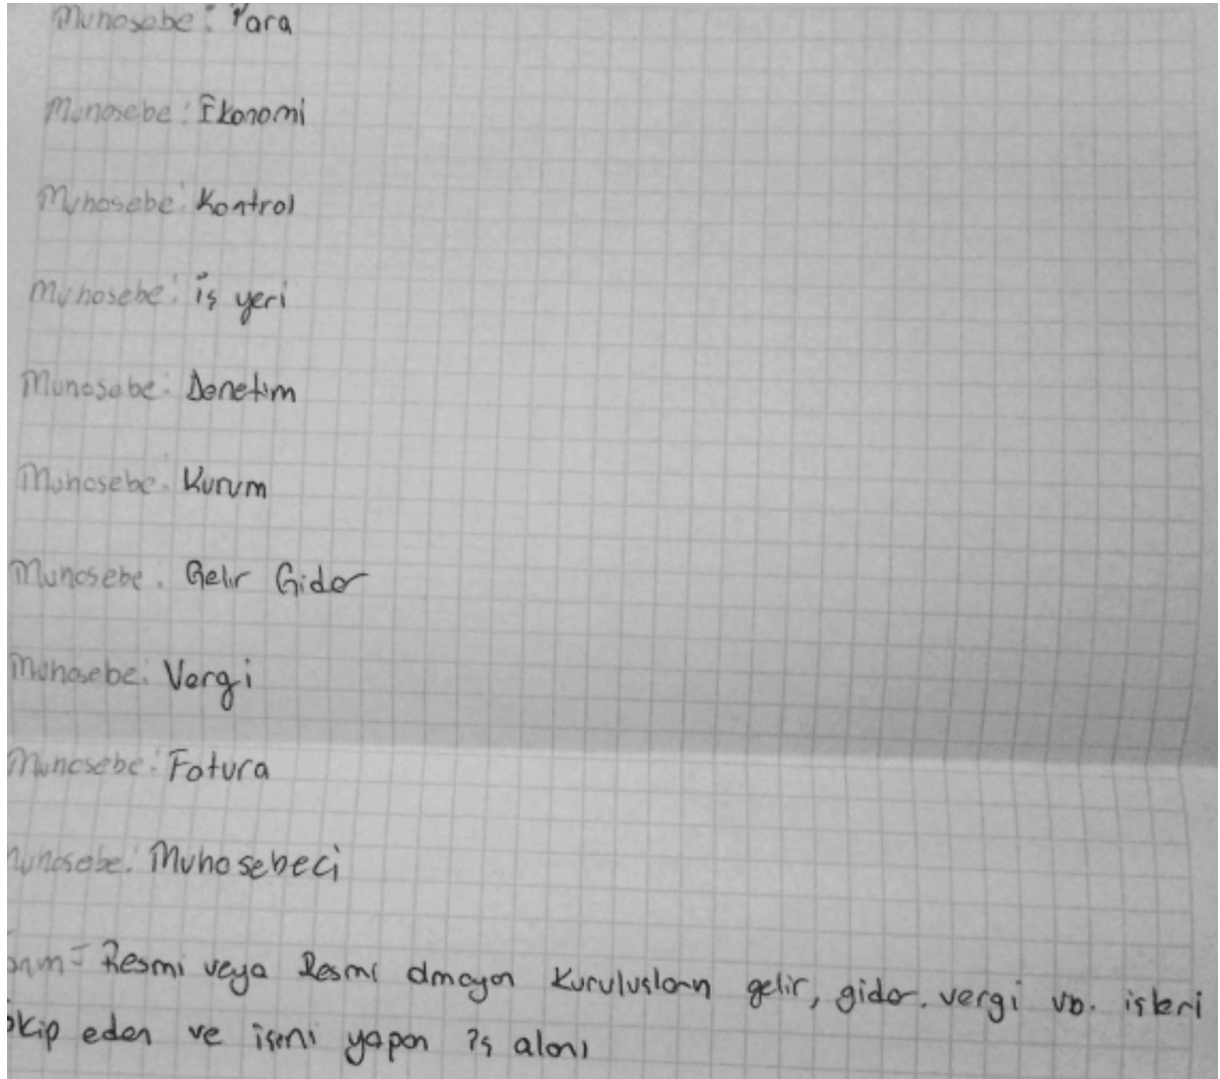 Muhasebe: Para
Muhasebe: Ekonomi
Muhasebe: Kontrol
Muhasebe: İş yeri
Muhasebe: Denetim
Muhasebe: Kurum
Muhasebe: Gelir Gider
Muhasebe: Vergi
Muhasebe: Fatura
Muhasebe: Muhasebeci
Resmi veya Resmi olmayan Kuruluşların gelir, gider, vergi vb. işleri
eden ve işini yapan iş alanı